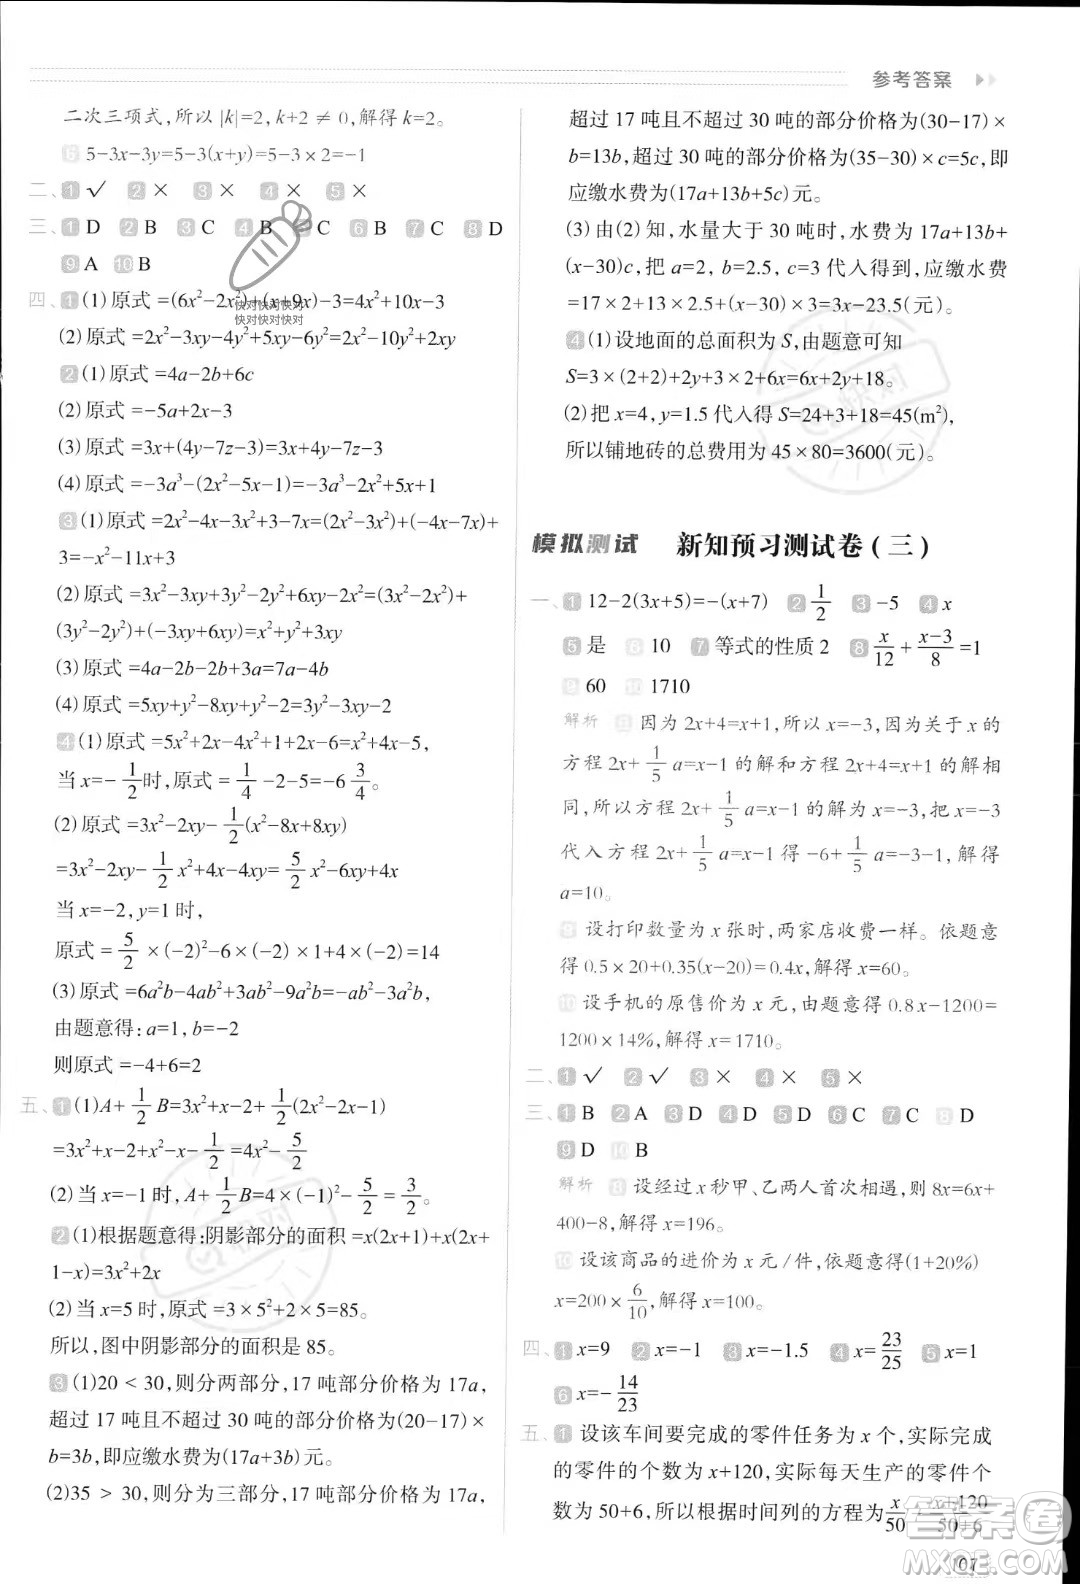 参考答案
二次三项式,所以 |k|=2, k+2 ≠ 0,解得 k=2。
6 5-3x-3y=5-3(x+y)=5-3×2=-1
二、1 √ 2 × 3 × 4 × 5 ×
三、1 D 2 B 3 C 4 B 5 C 6 B 7 C 8 D
9 A 10 B
四、1 (1)原式 =(6x²-2x²)+(x+9x)-3=4x²+10x-3
(2)原式 =2x²-3xy-4y²+5xy-6y²=2x²+2xy-10y²
2 (1)原式 =4a-2b+6c
(2)原式 =-5a+2x-3
(3)原式 =3x+(4y-7z-3)=3x+4y-7z-3
(4)原式 =-3a³-(2x²-5x-1)=-3a³-2x²+5x+1
3 (1)原式 =2x²-4x-3x²+3-7x=(2x²-3x²)+(-4x-7x)+
3=-x²-11x+3
(2)原式 =3x²-3xy+3y²-3xy-2y²=3x²+
(3y²-2y²)+(-3xy-3xy)=3x²+y²-6xy
(3)原式 =4a-2b-2b+3a=7a-4b
(4)原式 =5xy+y²-8xy+y²-2=2y²-3xy-2
4 (1)原式 =5x²+2x-4x²-4x-5=x²-2x-5,
当 x=-1/2时,原式 =1/4-2-5=-6 3/4。
(2)原式 =3x²-2xy-1/2(x²-8x+8xy)
=3x²-2xy-1/2x²+4x-4xy=5/2x²-6xy+4x
当 x=-2, y=1 时,
原式 =5/2×(-2)²-6×(-2)×1+4×(-2)=14
(3)原式 =6a²b-4ab²+3ab²-9a²b=-ab²-3a²b
由题意得: a=1, b=-2
则原式 =-4+6=2
五、1 (1)A+1/2B=3x²+x-2+1/2(2x²-2x-1)
=3x²+x-2+x²-x-1/2=4x²-5/2
(2)当 x=-1时, A+1/2B=4×(-1)²-5/2=3/2。
2 (1)根据题意得:阴影部分的面积 =x(2x+1)+x(2x+
1-x)=3x²+2x
(2)当 x=5 时,原式 =3×5²+2×5=85。
所以,图中阴影部分的面积是 85。
3 (1)20 < 30,则分两部分,17 吨部分价格为 17a,
超过 17 吨且不超过 30 吨的部分价格为(20-17)×
b=3b,即应缴水费为(17a+3b)元。
(2)35 > 30,则分为三部分,17 吨部分价格为 17a,
超过 17 吨且不超过 30 吨的部分价格为(30-17)×
b=13b,超过 30 吨的部分价格为(35-30)×c=5c,即
应缴水费为(17a+13b+5c)元。
(3)由(2)知,水量大于 30 吨时,水费为 17a+13b+
(x-30)c,把 a=2, b=2.5, c=3 代入得到,应缴水费
=17×2+13×2.5+(x-30)×3=3x-23.5(元)。
4 (1)设地面的总面积为 S,由题意可知
S=3×(2+2)+2y+3×2+6x=6x+2y+18。
(2)把 x=4, y=1.5 代入得 S=24+3+18=45(m²),
所以铺地砖的总费用为 45×80=3600(元)。
模拟测试 新知预习测试卷(三)
一、1 12-2(3x+5)=-(x+7) 2 1/2 3 -5 4 x
5 是 6 10 7 等式的性质 2 8 x/12+(x-3)/8=1
9 60 10 1710
解析 6 因为 2x+4=x+1,所以 x=-3,因为关于 x 的
方程 2x+1/5a=x-1 的解和方程 2x+4=x+1 的解相
同,所以方程 2x+1/5a=x-1 的解为 x=-3,把 x=-3
代入方程 2x+1/5a=x-1 得 -6+1/5a=-3-1,解得
a=10。
9 设打印数量为 x 张时,两家店收费一样。依题意
得 0.5×20+0.35(x-20)=0.4x,解得 x=60。
10 设手机的原售价为 x 元,由题意得 0.8x-1200=
1200×14%,解得 x=1710。
二、1 √ 2 √ 3 × 4 × 5 ×
三、1 B 2 A 3 D 4 D 5 C 6 C 7 C 8 D
9 D 10 B
解析 8 设经过 x 秒甲、乙两人首次相遇,则 8x=6x+
400-8,解得 x=196。
10 设该商品的进价为 x 元/件,依题意得(1+20%)
x=200×6/10,解得 x=100。
四、1 x=9 2 x=-1 3 x=-1.5 4 x=23/25 5 x=1
6 x=-14/23
五、1 设该车间要完成的零件任务为 x 个,实际完成
的零件的个数为 x+120,实际每天生产的零件个
数为 50+6,所以根据时间列的方程为x/50-(x+120)/(50+6)
107
快对快对快对
快对快对快对
快对
快对
答案圈
MXQE.COM